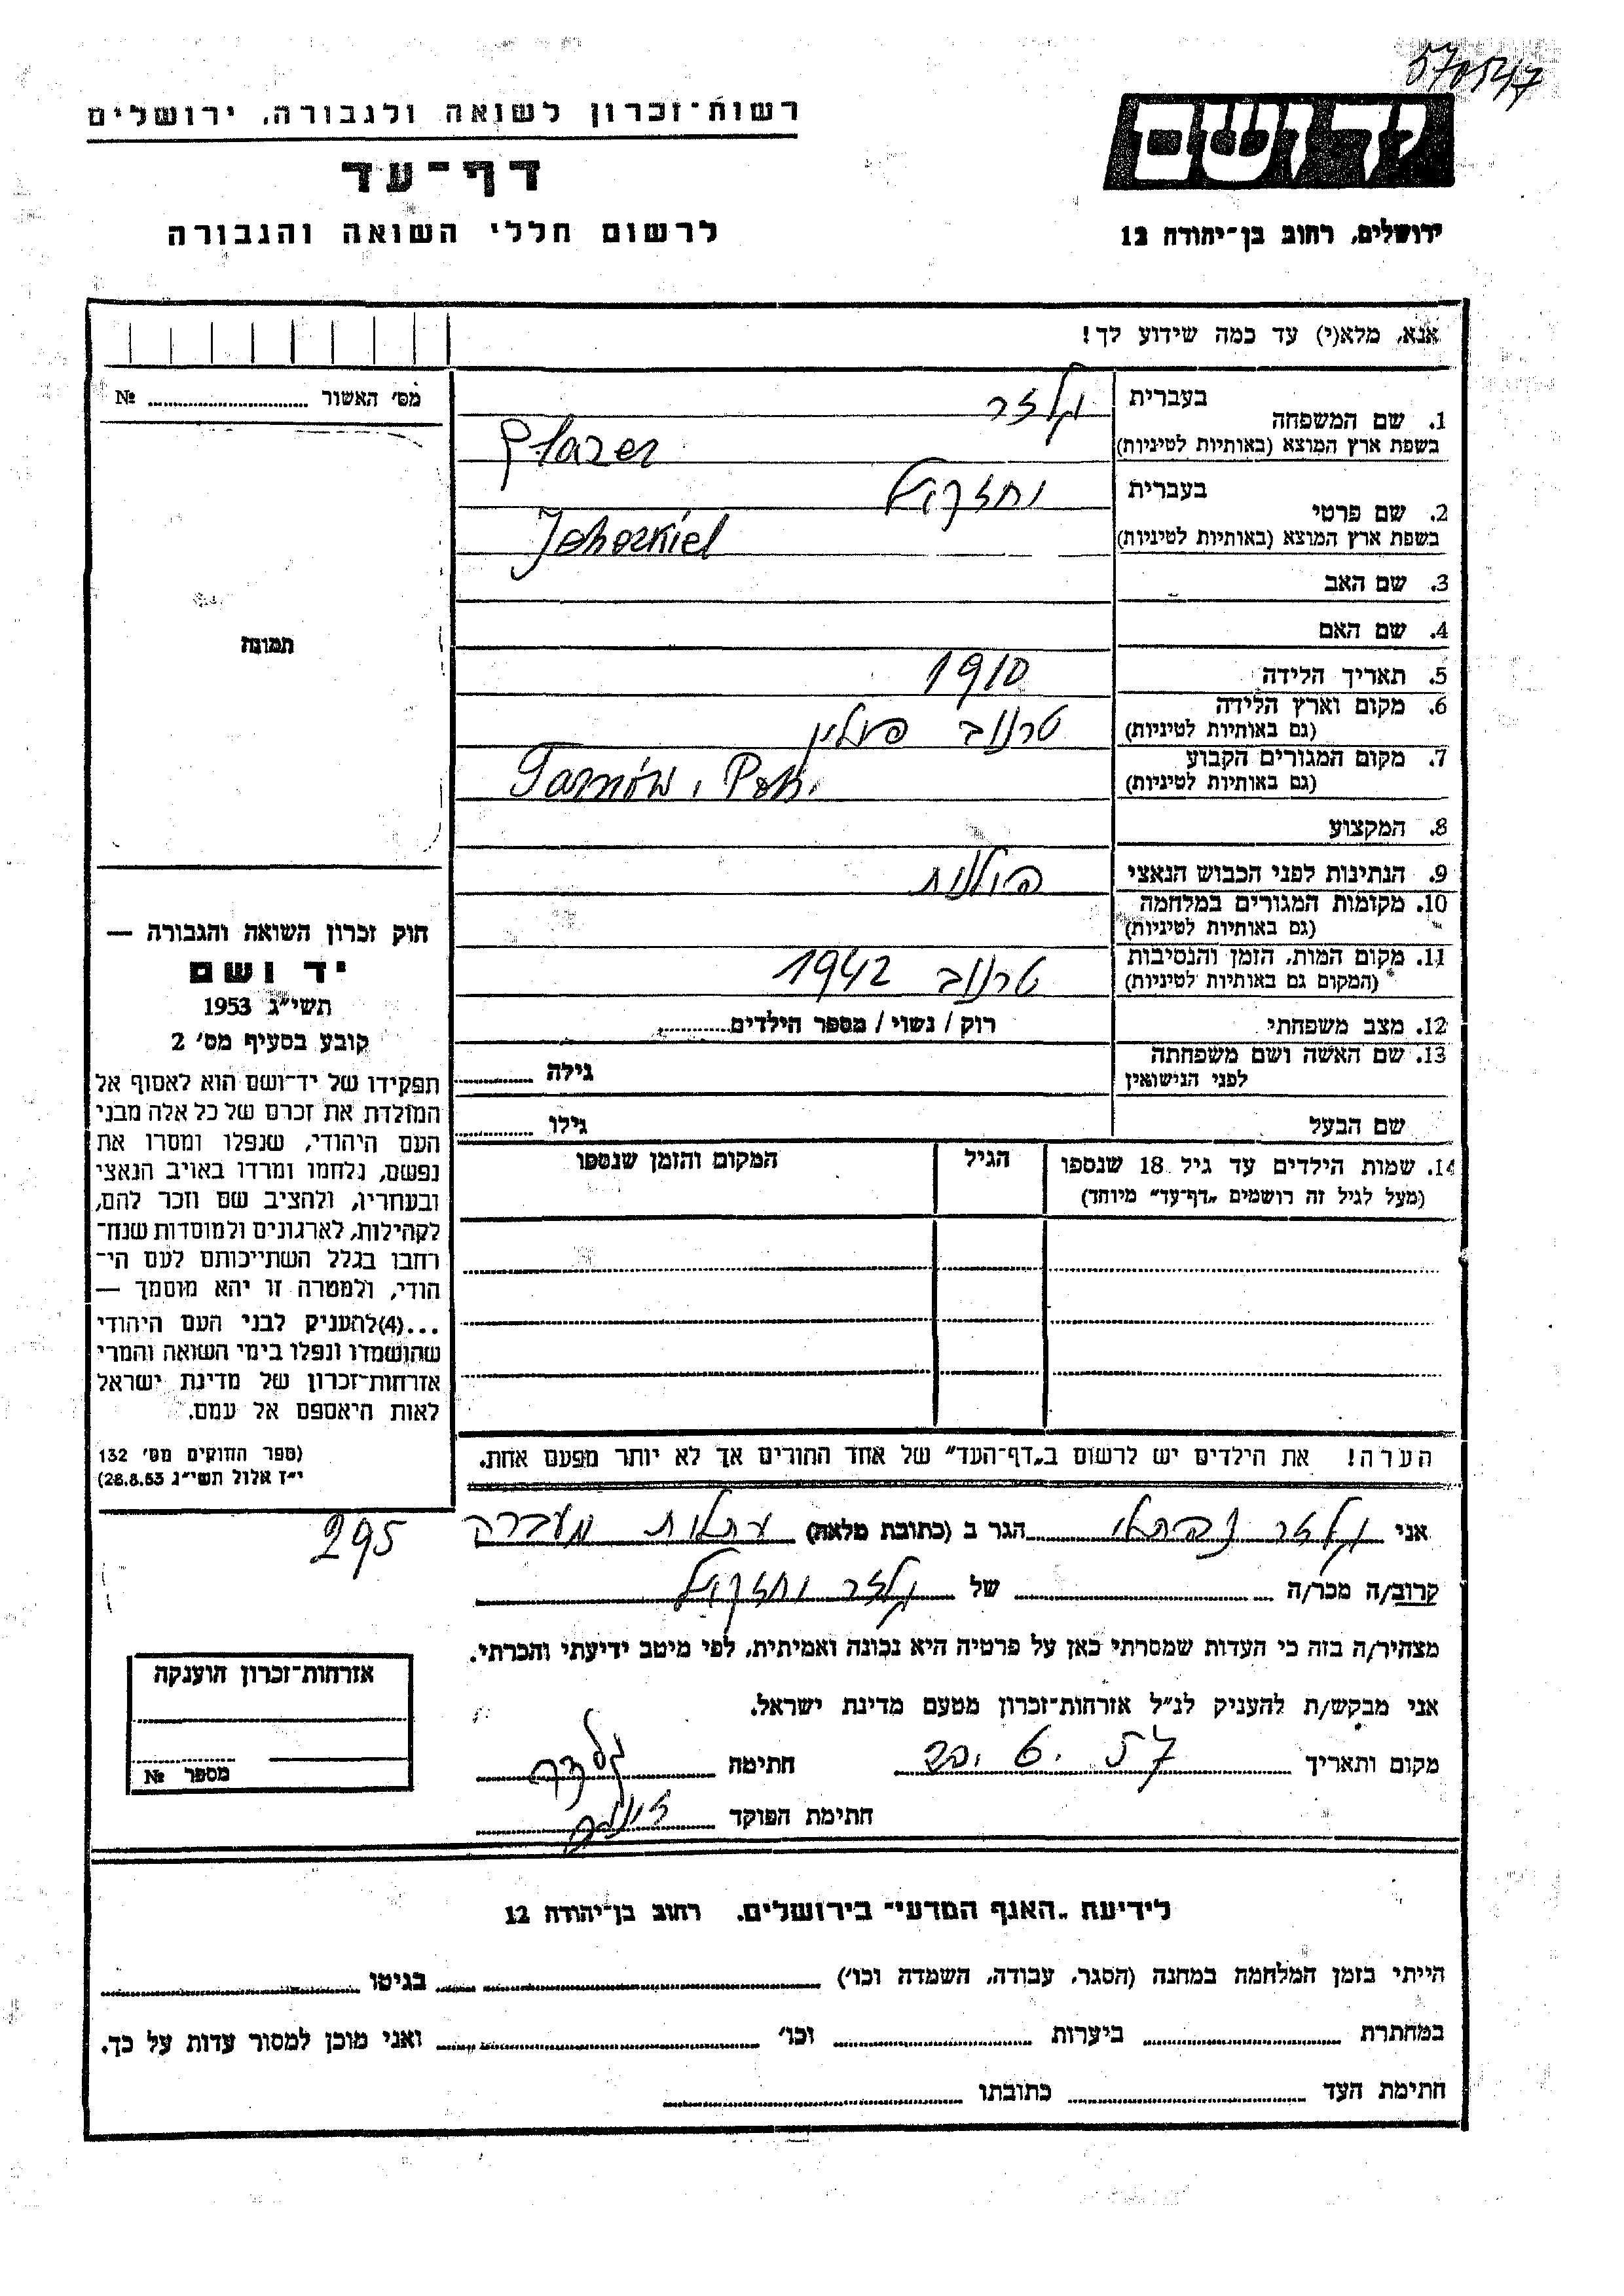 570547
יד ושם
ירושלים, רחוב בן־יהודה 12
רשות־זכרון לשואה ולגבורה, ירושלים
דף־עד
לרשום חללי השואה והגבורה
אנא, מלא(י) עד כמה שידוע לך!
מס' האשור № 
1. שם המשפחה
בעברית גלזר
בשפת ארץ המוצא (באותיות לטיניות) Glazer
2. שם פרטי
בעברית יחזקאל
בשפת ארץ המוצא (באותיות לטיניות) Jehezkiel
3. שם האב
4. שם האם
5. תאריך הלידה 1910
6. מקום וארץ הלידה טרנוב פולין
(גם באותיות לטיניות)
7. מקום המגורים הקבוע Tarnów, Pol.
(גם באותיות לטיניות)
8. המקצוע
9. הנתינות לפני הכבוש הנאצי פולנית
10. מקומות המגורים במלחמה
(גם באותיות לטיניות)
11. מקום המות, הזמן והנסיבות טרנוב 1942
(המקום גם באותיות לטיניות)
12. מצב משפחתי רוק / נשוי / מספר הילדים
13. שם האשה ושם משפחתה
לפני הנישואין גילה
שם הבעל גילו
14. שמות הילדים עד גיל 18 שנספו הגיל המקום והזמן שנספו
(מעל לגיל זה רושמים „דף־עד” מיוחד)
הערה! את הילדים יש לרשום ב„דף־העד” של אחד ההורים אך לא יותר מפעם אחת.
תמונה
חוק זכרון השואה והגבורה —
יד ושם
תשי״ג 1953
קובע בסעיף מס' 2
תפקידו של יד־ושם הוא לאסוף אל
המולדת את זכרם של כל אלה מבני
העם היהודי, שנפלו ומסרו את
נפשם, נלחמו ומרדו באויב הנאצי
ובעוזריו, ולהציב שם וזכר להם,
לקהילות, לארגונים ולמוסדות שנח־
רבו בגלל השתייכותם לעם הי־
הודי, ולמטרה זו יהא מוסמך —
...(4)להעניק לבני העם היהודי
שהושמדו ונפלו בימי השואה והמרי
אזרחות־זכרון של מדינת ישראל
לאות היאספם אל עמם.
(ספר החוקים מס' 132
י״ז אלול תשי״ג 28.8.53)
295
אני גלזר נפתלי הגר ב (כתובת מלאה) עתלית מעברה
קרוב/ה מכר/ה של גלזר יחזקאל
מצהיר/ה בזה כי העדות שמסרתי כאן על פרטיה היא נכונה ואמיתית, לפי מיטב ידיעתי והכרתי.
אני מבקש/ת להעניק לנ״ל אזרחות־זכרון מטעם מדינת ישראל.
מקום ותאריך 20.6.57 חתימה
חתימת הפוקד
אזרחות־זכרון הוענקה
מספר №
לידיעת „האגף המדעי” בירושלים, רחוב בן־יהודה 12
הייתי בזמן המלחמה במחנה (הסגר, עבודה, השמדה וכו') בגיטו
במחתרת ביערות וכו' ואני מוכן למסור עדות על כך.
חתימת העד כתובתו